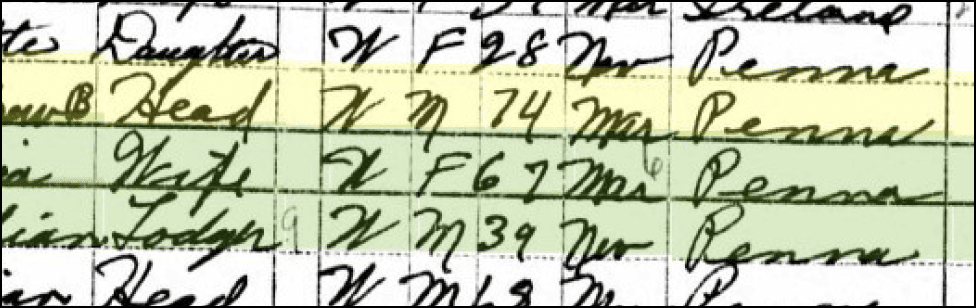 Mar Ireland
Daughter W F 28 Nev Penna
B Head W M 74 Mar Penna
Wife W F 67 Mar 6 Penna
Lodger 9 W M 39 Nev Penna
Head W M 68